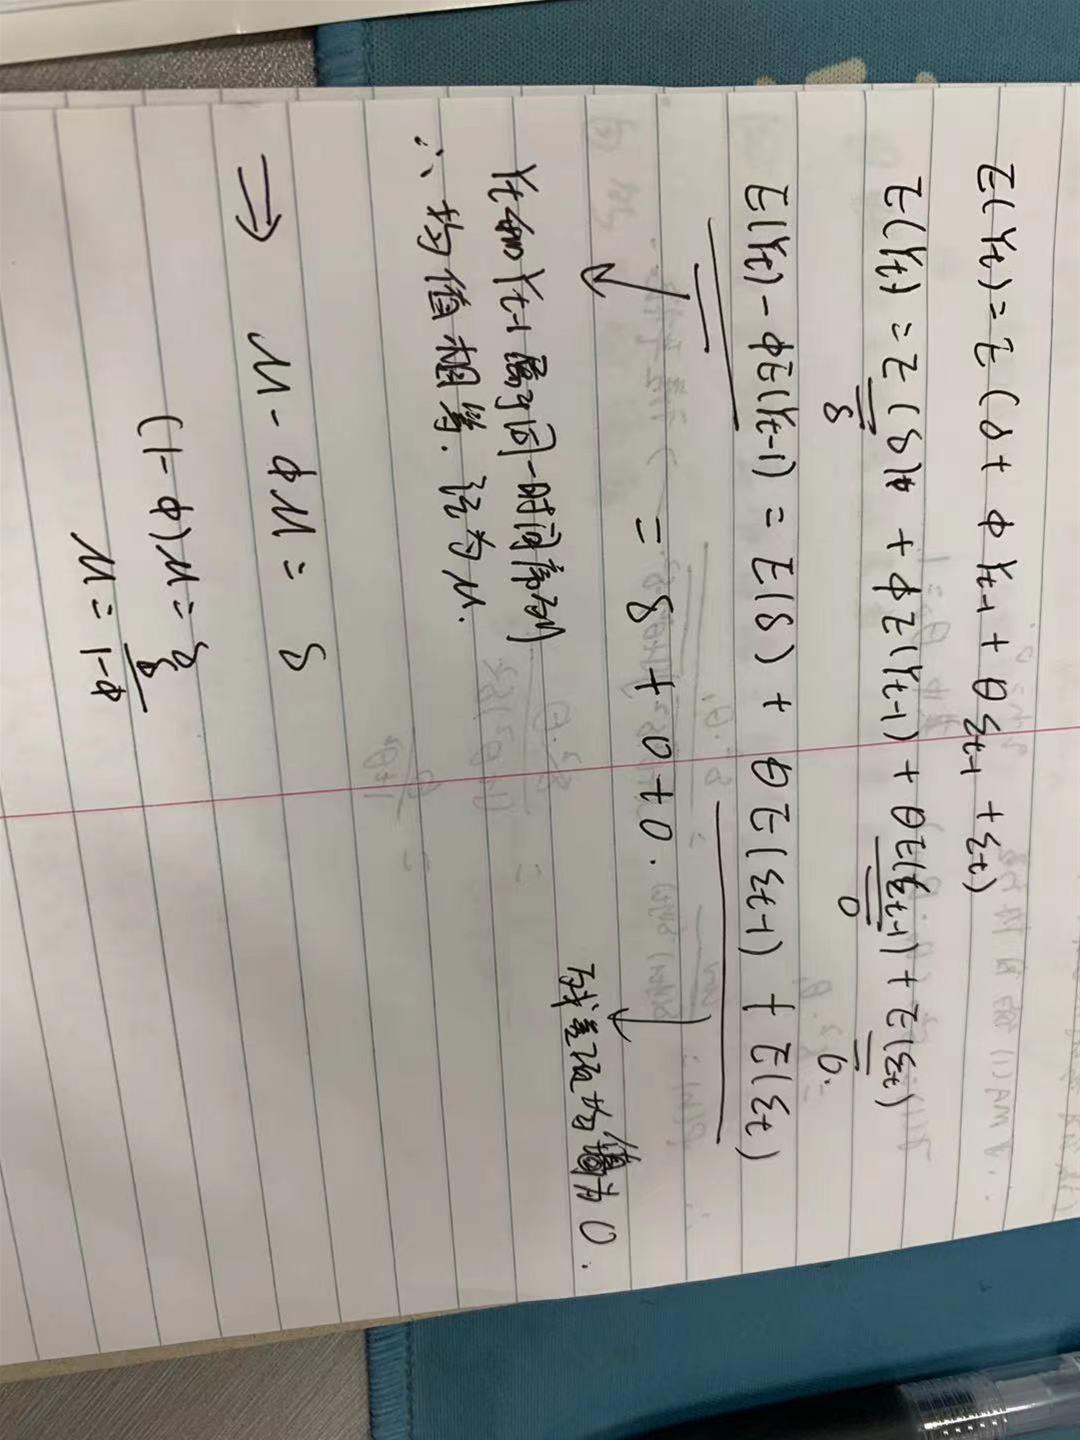 E(Yt) = E(δ + φYt-1 + θεt-1 + εt)
E(Yt) = E(δ) + φE(Yt-1) + θE(εt-1) + E(εt)
δ 0 0.
E(Yt) - φE(Yt-1) = E(δ) + θE(εt-1) + E(εt)
= δ + 0 + 0.
残差项均值为0.
Yt和Yt-1属于同一时间序列
∴ 均值相等. 记为μ.
⇒ μ - φμ = δ
(1-φ)μ = δ
μ = δ/1-φ